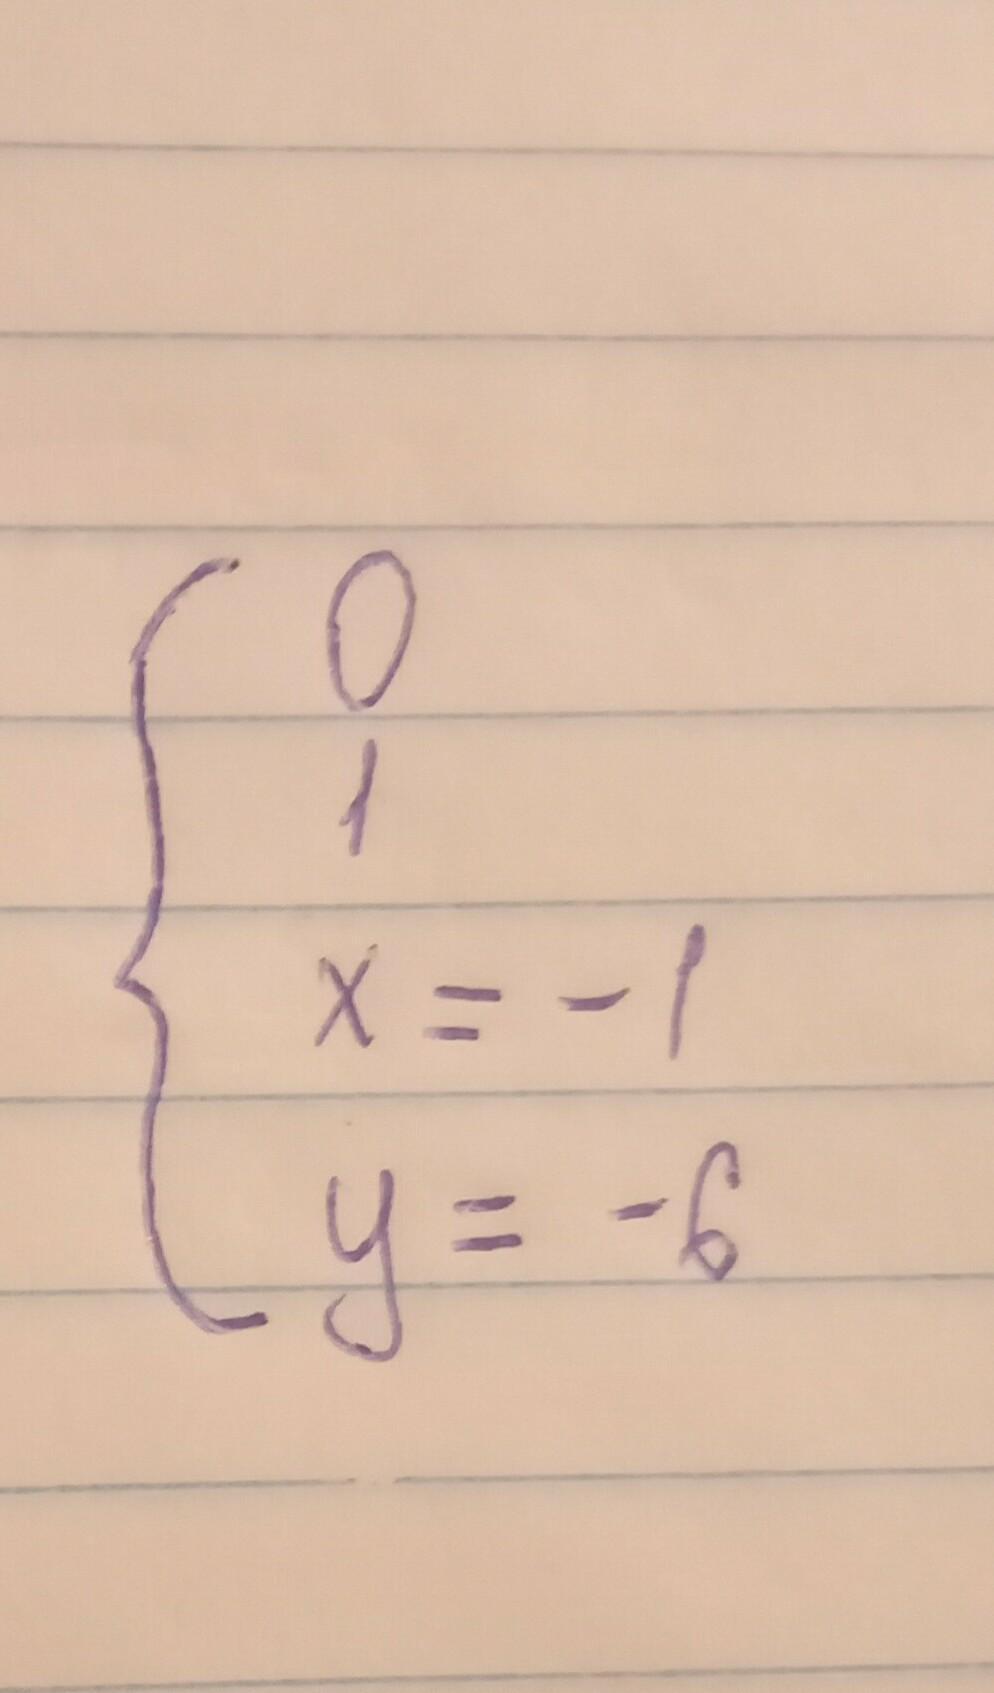 0
1
x = -1
y = -6